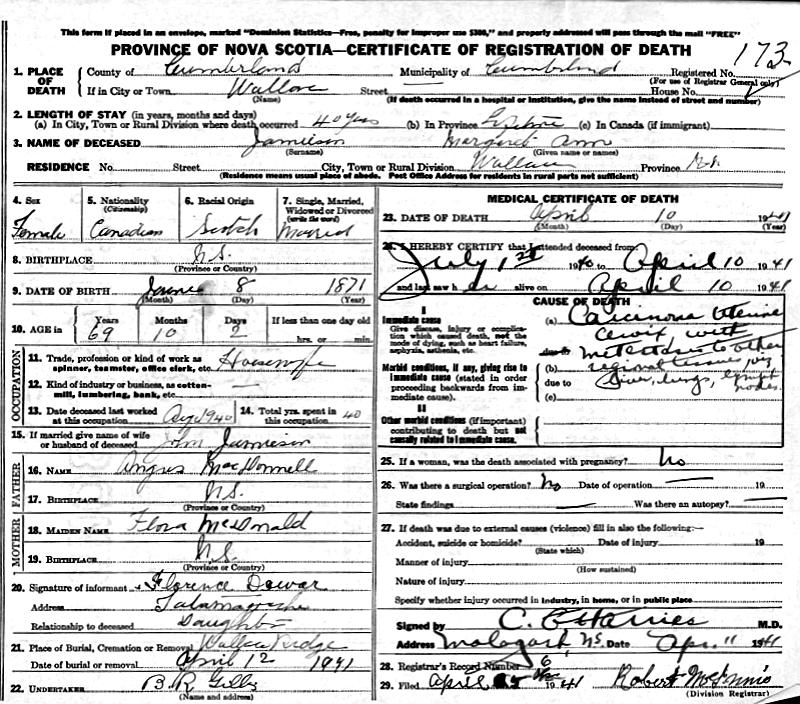 This form if placed in an envelope, marked "Dominion Statistics—Free, penalty for improper use $300," and properly addressed will pass through the mail "FREE"
PROVINCE OF NOVA SCOTIA—CERTIFICATE OF REGISTRATION OF DEATH
173
1. PLACE OF DEATH County of Cumberland Municipality of Cumberland Registered No.
(For use of Registrar General only)
If in City or Town Wallace Street — House No.
(Name) (If death occurred in a hospital or institution, give the name instead of street and number)
2. LENGTH OF STAY (in years, months and days)
(a) In City, Town or Rural Division where death occurred 40 yrs (b) In Province Lifetime (c) In Canada (if immigrant)
3. NAME OF DECEASED Jamieson Margaret Ann
(Surname) (Given name or names)
RESIDENCE No. Street City, Town or Rural Division Wallace Province N.S.
(Residence means usual place of abode. Post Office Address for residents in rural parts not sufficient)
4. Sex Female
5. Nationality (Citizenship) Canadian
6. Racial Origin Scotch
7. Single, Married, Widowed or Divorced (write the word) Married
8. BIRTHPLACE N.S.
(Province or Country)
9. DATE OF BIRTH June 8 1871
(Month) (Day) (Year)
10. AGE in Years Months Days If less than one day old
69 10 2 hrs. or min.
OCCUPATION
11. Trade, profession or kind of work as spinner, teamster, office clerk, etc. Housewife
12. Kind of industry or business, as cotton-mill, lumbering, bank, etc. —
13. Date deceased last worked at this occupation Aug 1940
14. Total yrs. spent in this occupation 40
15. If married give name of wife or husband of deceased John Jamieson
FATHER
16. NAME Angus MacDonnell
17. BIRTHPLACE N.S.
(Province or Country)
MOTHER
18. MAIDEN NAME Flora McDonald
19. BIRTHPLACE N.S.
(Province or Country)
20. Signature of informant Florence Dewar
Address Tatamagouche
Relationship to deceased Daughter
21. Place of Burial, Cremation or Removal Wallace Ridge
Date of burial or removal April 12 1941
22. UNDERTAKER B. R. Gillis
(Name and address)
MEDICAL CERTIFICATE OF DEATH
23. DATE OF DEATH April 10 1941
(Month) (Day) (Year)
24. I HEREBY CERTIFY that I attended deceased from
July 1st 1940 to April 10 1941
and last saw her alive on April 10 1941
CAUSE OF DEATH
I
Immediate cause
Give disease, injury or complication which caused death, not the mode of dying, such as heart failure, asphyxia, asthenia, etc.
(a) Carcinoma Uterine
Cervix with
due to metastasis to other
Morbid conditions, if any, giving rise to immediate cause (stated in order proceeding backwards from immediate cause).
(b) regional tissues,
due to Liver, lungs, lymph
nodes.
(c)
II
Other morbid conditions (if important) contributing to death but not causally related to immediate cause.
25. If a woman, was the death associated with pregnancy? No
26. Was there a surgical operation? No Date of operation — 19
State findings — Was there an autopsy? —
27. If death was due to external causes (violence) fill in also the following:—
Accident, suicide or homicide? Date of injury 19
(State which)
Manner of injury
(How sustained)
Nature of injury
Specify whether injury occurred in industry, in home, or in public place
Signed by C. E. Harries M.D.
Address Malagash N.S. Date Apr. 11 1941
28. Registrar's Record Number 6
29. Filed April 1941 Robert McGinnis
(Division Registrar)